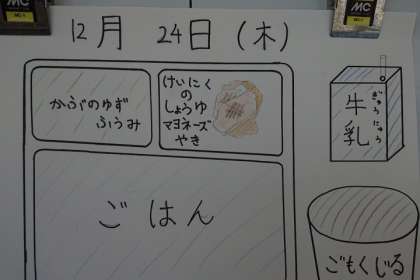 MC
MC
12月 24日 (木)
かぶのゆず
ふうみ
けいにく
の
しょうゆ
マヨネーズ
やき
ぎゅう
にゅう
牛
乳
ごはん
ごもくじる